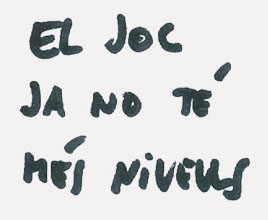 EL JOC
JA NO TÉ
MÉS NIVELLS